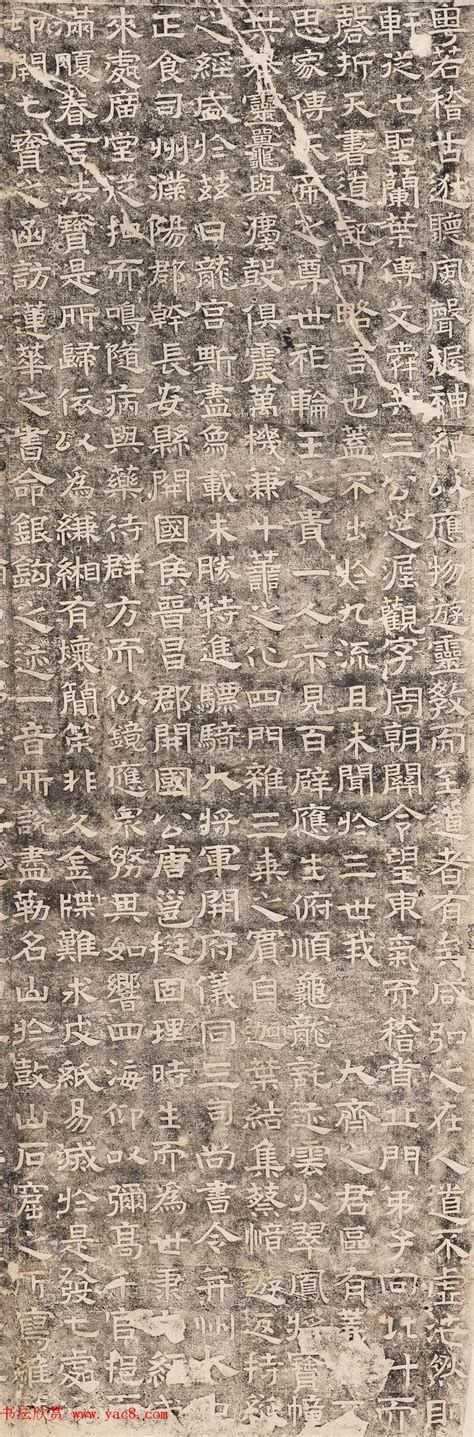 粤若稽古逖聽風聲握神以應物遊靈教而至道者有矣咸弘之在人道不虛茫然則
軒從七聖蘭葉傳文舜共三公芝渥觀字周朝關令望東氣而稽首丘門弟子向北斗而
磬折天書道記可略言也蓋不出於九流且未聞於三世我大齊之君區有義
忠家傳天帝之尊世祚輪王之貴一人示見百辟應生俯順龜龍託迹雲火翠鳳將寶幢
共來靈鼉與鼓俱震萬機兼十善之化四門雜三乘之賓自迦葉結集蔡愔遊返持綖
之經盛於茲日龍宮斯盡象載未勝特進驃騎大將軍開府儀同三司尚書令并州大中
正食司州濮陽郡幹長安縣開國侯晉昌郡開國公唐邕挺固理時生而為世秉文經
來處廣堂遂扣而鳴隨病與藥待群方而似鏡應眾務其如響四海仰以彌高千官挹而
滿腹眷言法寶是所歸依以為縑緗有壞簡策非久金牒難求皮紙易滅於是發七處
印開七寶之函訪蓮華之書命銀鉤之迹一音所說盡勒名山於鼓山石窟之所寫維
书法欣赏 www.yac8.com